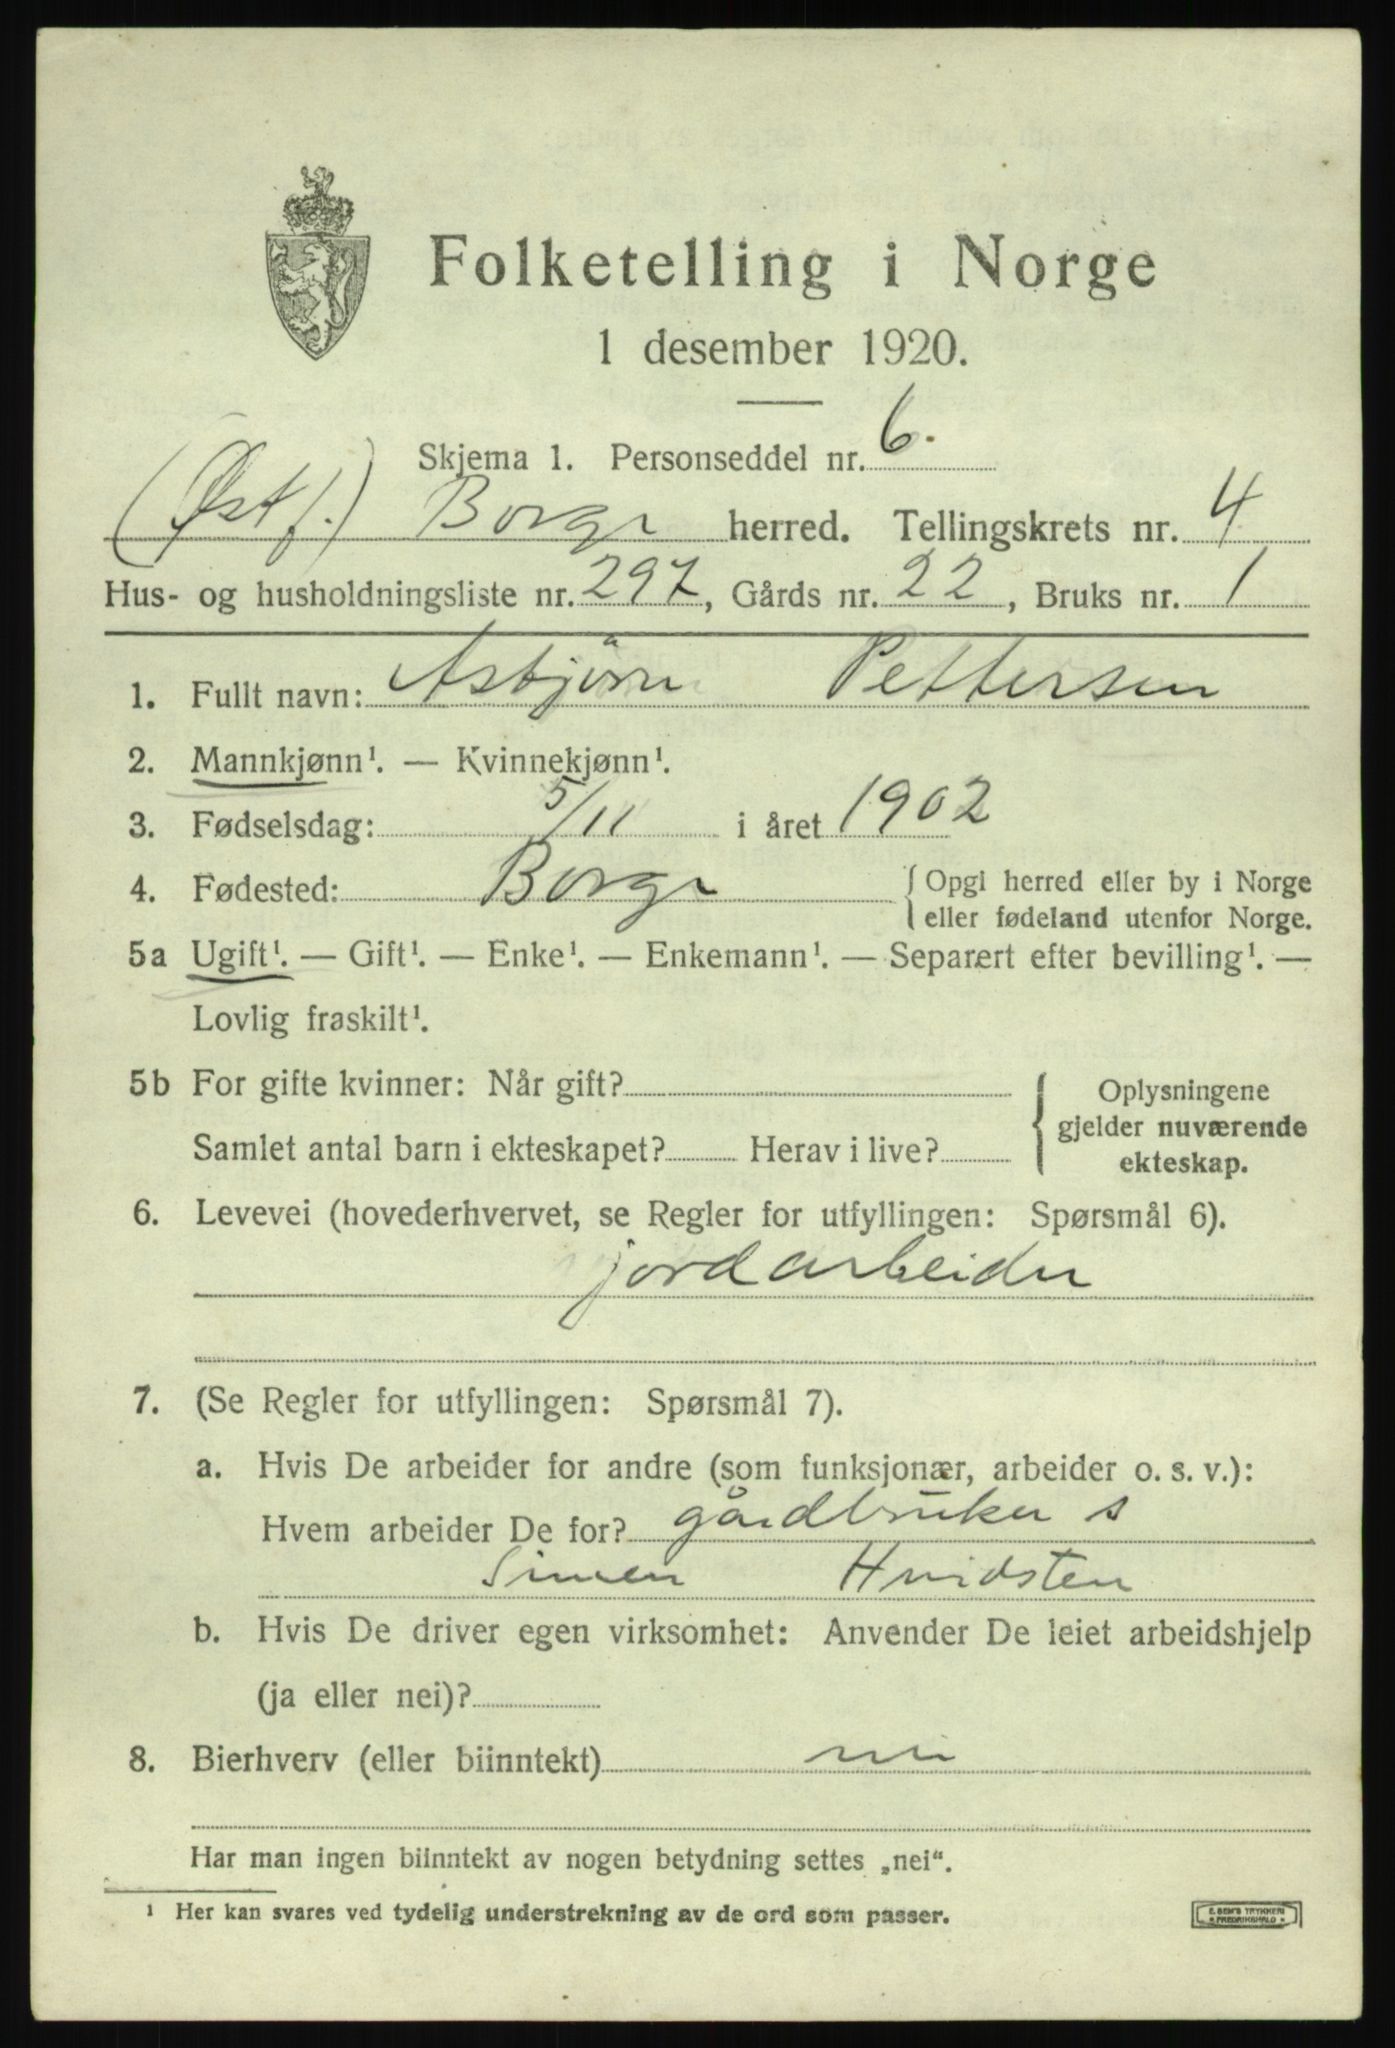 Folketelling i Norge
1 desember 1920.
Skjema 1. Personseddel nr. 6.
(Østf.) Borge herred. Tellingskrets nr. 4
Hus- og husholdningsliste nr. 297, Gårds nr. 22, Bruks nr. 1
1. Fullt navn: Asbjörn Pettersen
2. Mannkjønn¹. — Kvinnekjønn¹.
3. Fødselsdag: 5/11 i året 1902
4. Fødested: Borge { Opgi herred eller by i Norge
eller fødeland utenfor Norge.
5a Ugift¹. — Gift¹. — Enke¹. — Enkemann¹. — Separert efter bevilling¹. —
Lovlig fraskilt¹.
5b For gifte kvinner: Når gift?
Samlet antal barn i ekteskapet? Herav i live?
{ Oplysningene
gjelder nuværende
ekteskap.
6. Levevei (hovederhvervet, se Regler for utfyllingen: Spørsmål 6).
jordarbeider
7. (Se Regler for utfyllingen: Spørsmål 7).
a. Hvis De arbeider for andre (som funksjonær, arbeider o. s. v.):
Hvem arbeider De for? gårdbruker s
Simen Hvidsten
b. Hvis De driver egen virksomhet: Anvender De leiet arbeidshjelp
(ja eller nei)?
8. Bierhverv (eller biinntekt) nei
Har man ingen biinntekt av nogen betydning settes „nei“.
¹ Her kan svares ved tydelig understrekning av de ord som passer.
E. SEM'S TRYKKERI
FREDRIKSHALD